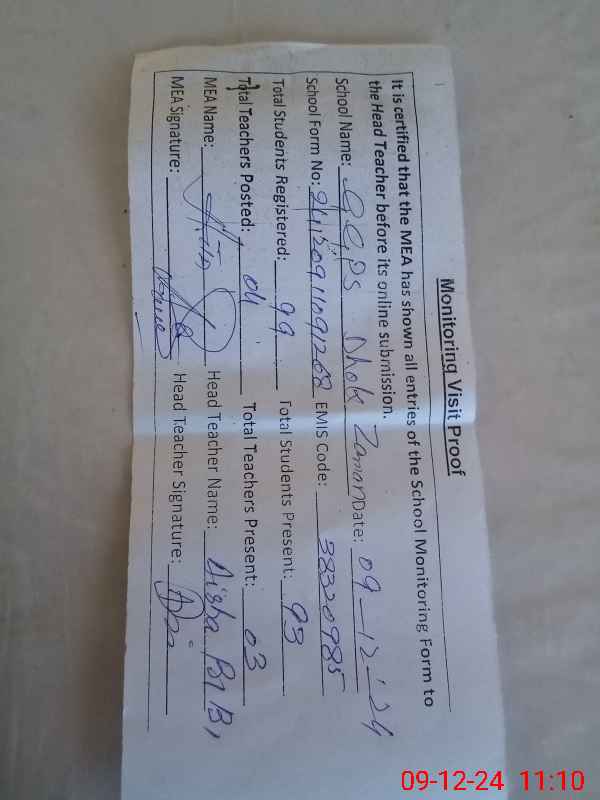 Monitoring Visit Proof
It is certified that the MEA has shown all entries of the School Monitoring Form to
the Head Teacher before its online submission.
School Name: GGPS Dhok Zaman Date: 09-12-24
School Form No: EMIS Code: 38320985
Total Students Registered: 99 Total Students Present: 93
Total Teachers Posted: 04 Total Teachers Present: 03
MEA Name: Head Teacher Name: Aisha BiBi
MEA Signature: Head Teacher Signature:
09-12-24 11:10